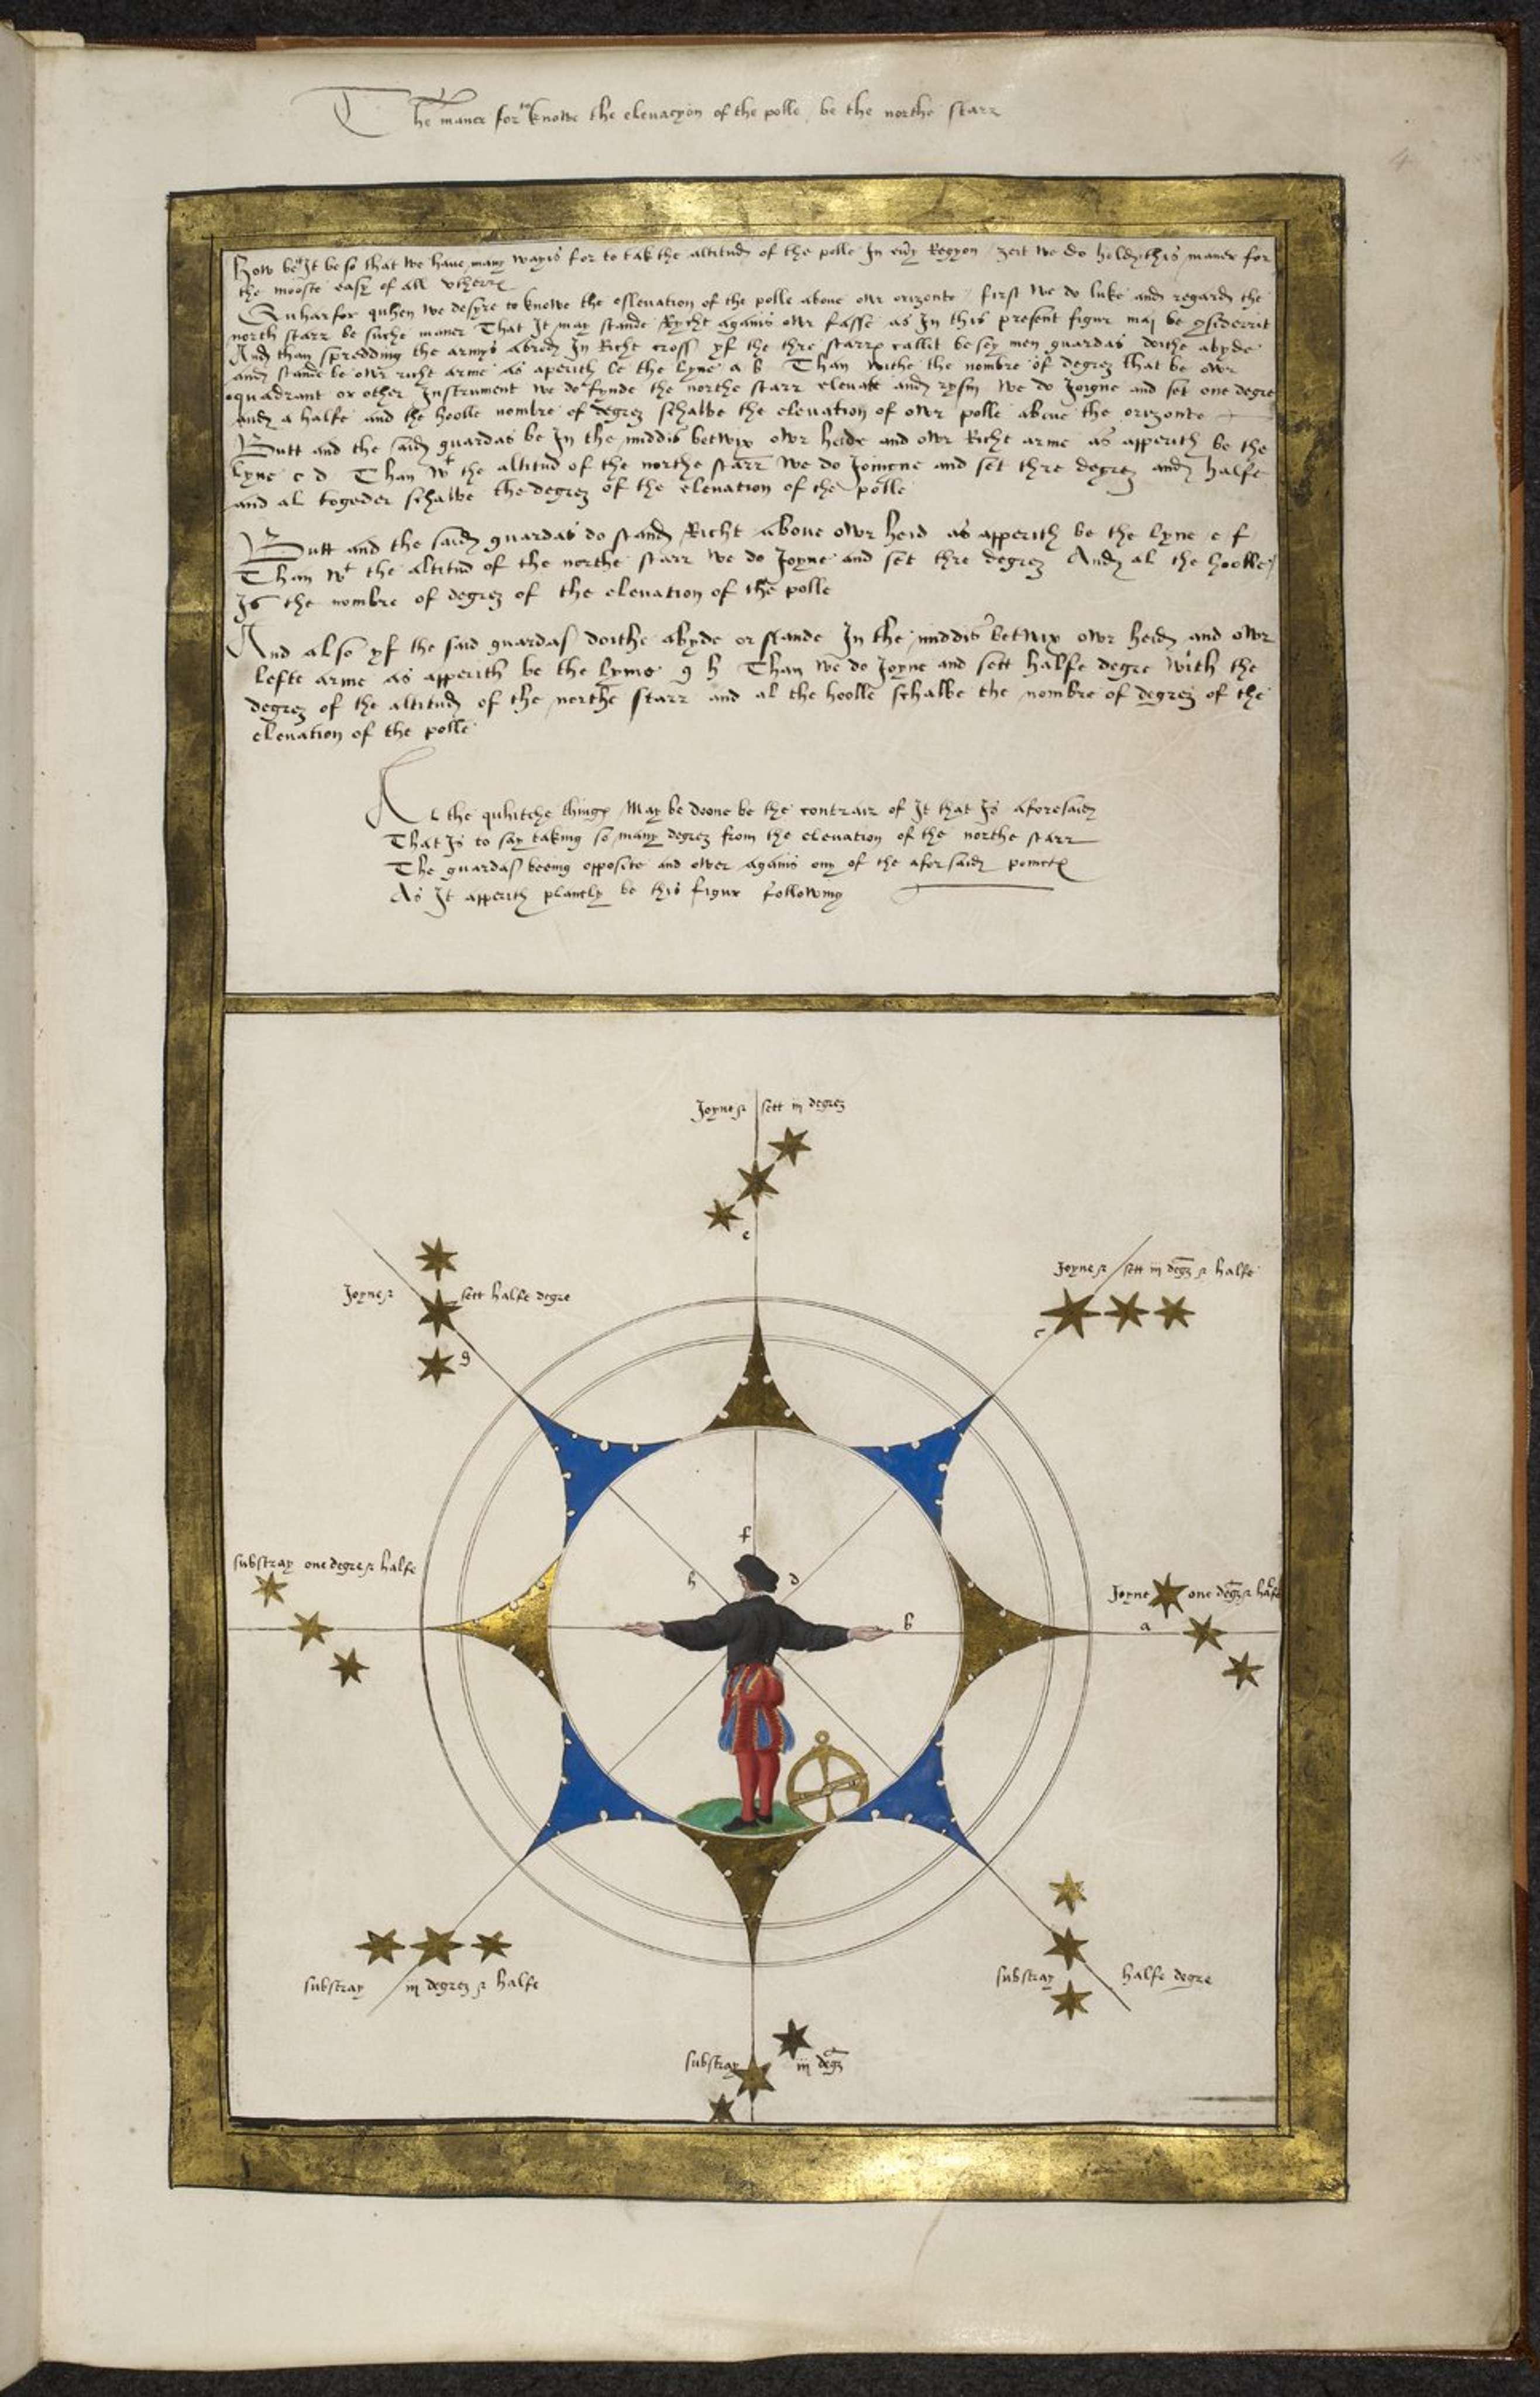 The maner for to knowe the elevacyon of the polle be the northe starr
4
How be it It be so that we have many wayis for to tak the altitud of the polle In every Regyon / zeit we do hold this maner for
the mooste easy of all
Quharfor quhen we desyre to knowe the ellevation of the polle above owr orizonte / first we do luke and regard the
north starr be suche maner That It may stande Rycht aganis owr fasse as In this present figur may be
And than spredding the armys abred In Richt cross yf the thre starrs callit be sey men guardas dothe abyde
and stande be owr richt arme as aperith be the lyne a b Than withe the nombre of degrez that be owr
quadrant or other Instrument we do fynde the northe starr elevate and rysin we do Joigne and set one degre
and a halfe and the hoolle nombre of degrez schalbe the elevation of owr polle above the orizonte
Butt and the said guardas be In the middis betwix owr heide and owr Richt arme as apperith be the
lyne c d Than wt the altitud of the northe starr we do Joingne and set thre degrez and halfe
and al togeder schalbe the degrez of the elevation of the polle
Butt and the said guardas do stand Richt above owr heid as apperith be the lyne e f
Than wt the altitud of the northe starr we do Joyne and set thre degrez And al the hoolle
Is the nombre of degrez of the elevation of the polle
And also yf the said guardas doithe abyde or stande In the middis betwix owr heid and owr
lefte arme as apperith be the lyme g h Than we do Joyne and sett halfe degre with the
degrez of the altitud of the northe starr and al the hoolle schalbe the nombre of degrez of the
elevation of the polle
Al the quhitche things May be doone be the contrair of It that Is aforesaid
That Is to say taking so many degrez from the elevation of the northe starr
The guardas beeing opposite and over aganis ony of the aforsaid
As It apperith planely be this figur following
Joyne & sett iij degrez
e
Joyne & sett iij degz & halfe
c
Joyne & sett halfe degre
g
f
h d
substray one degre & halfe
Joyne one degre & halfe
a
b
substray iij degrez & halfe
substray halfe degre
substray iij degz